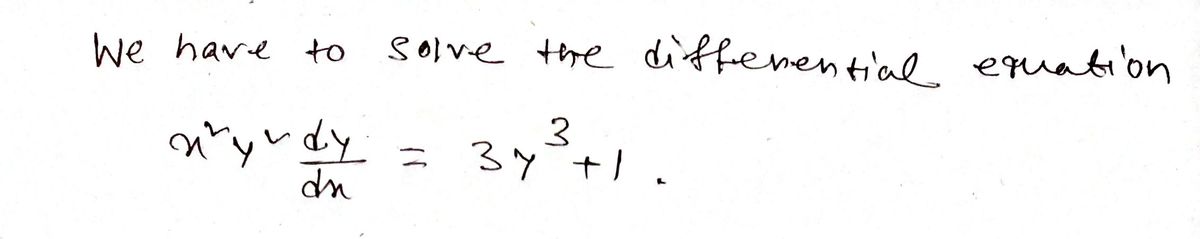 We have to solve the differential equation
x²y² dy/dx = 3y³+1.